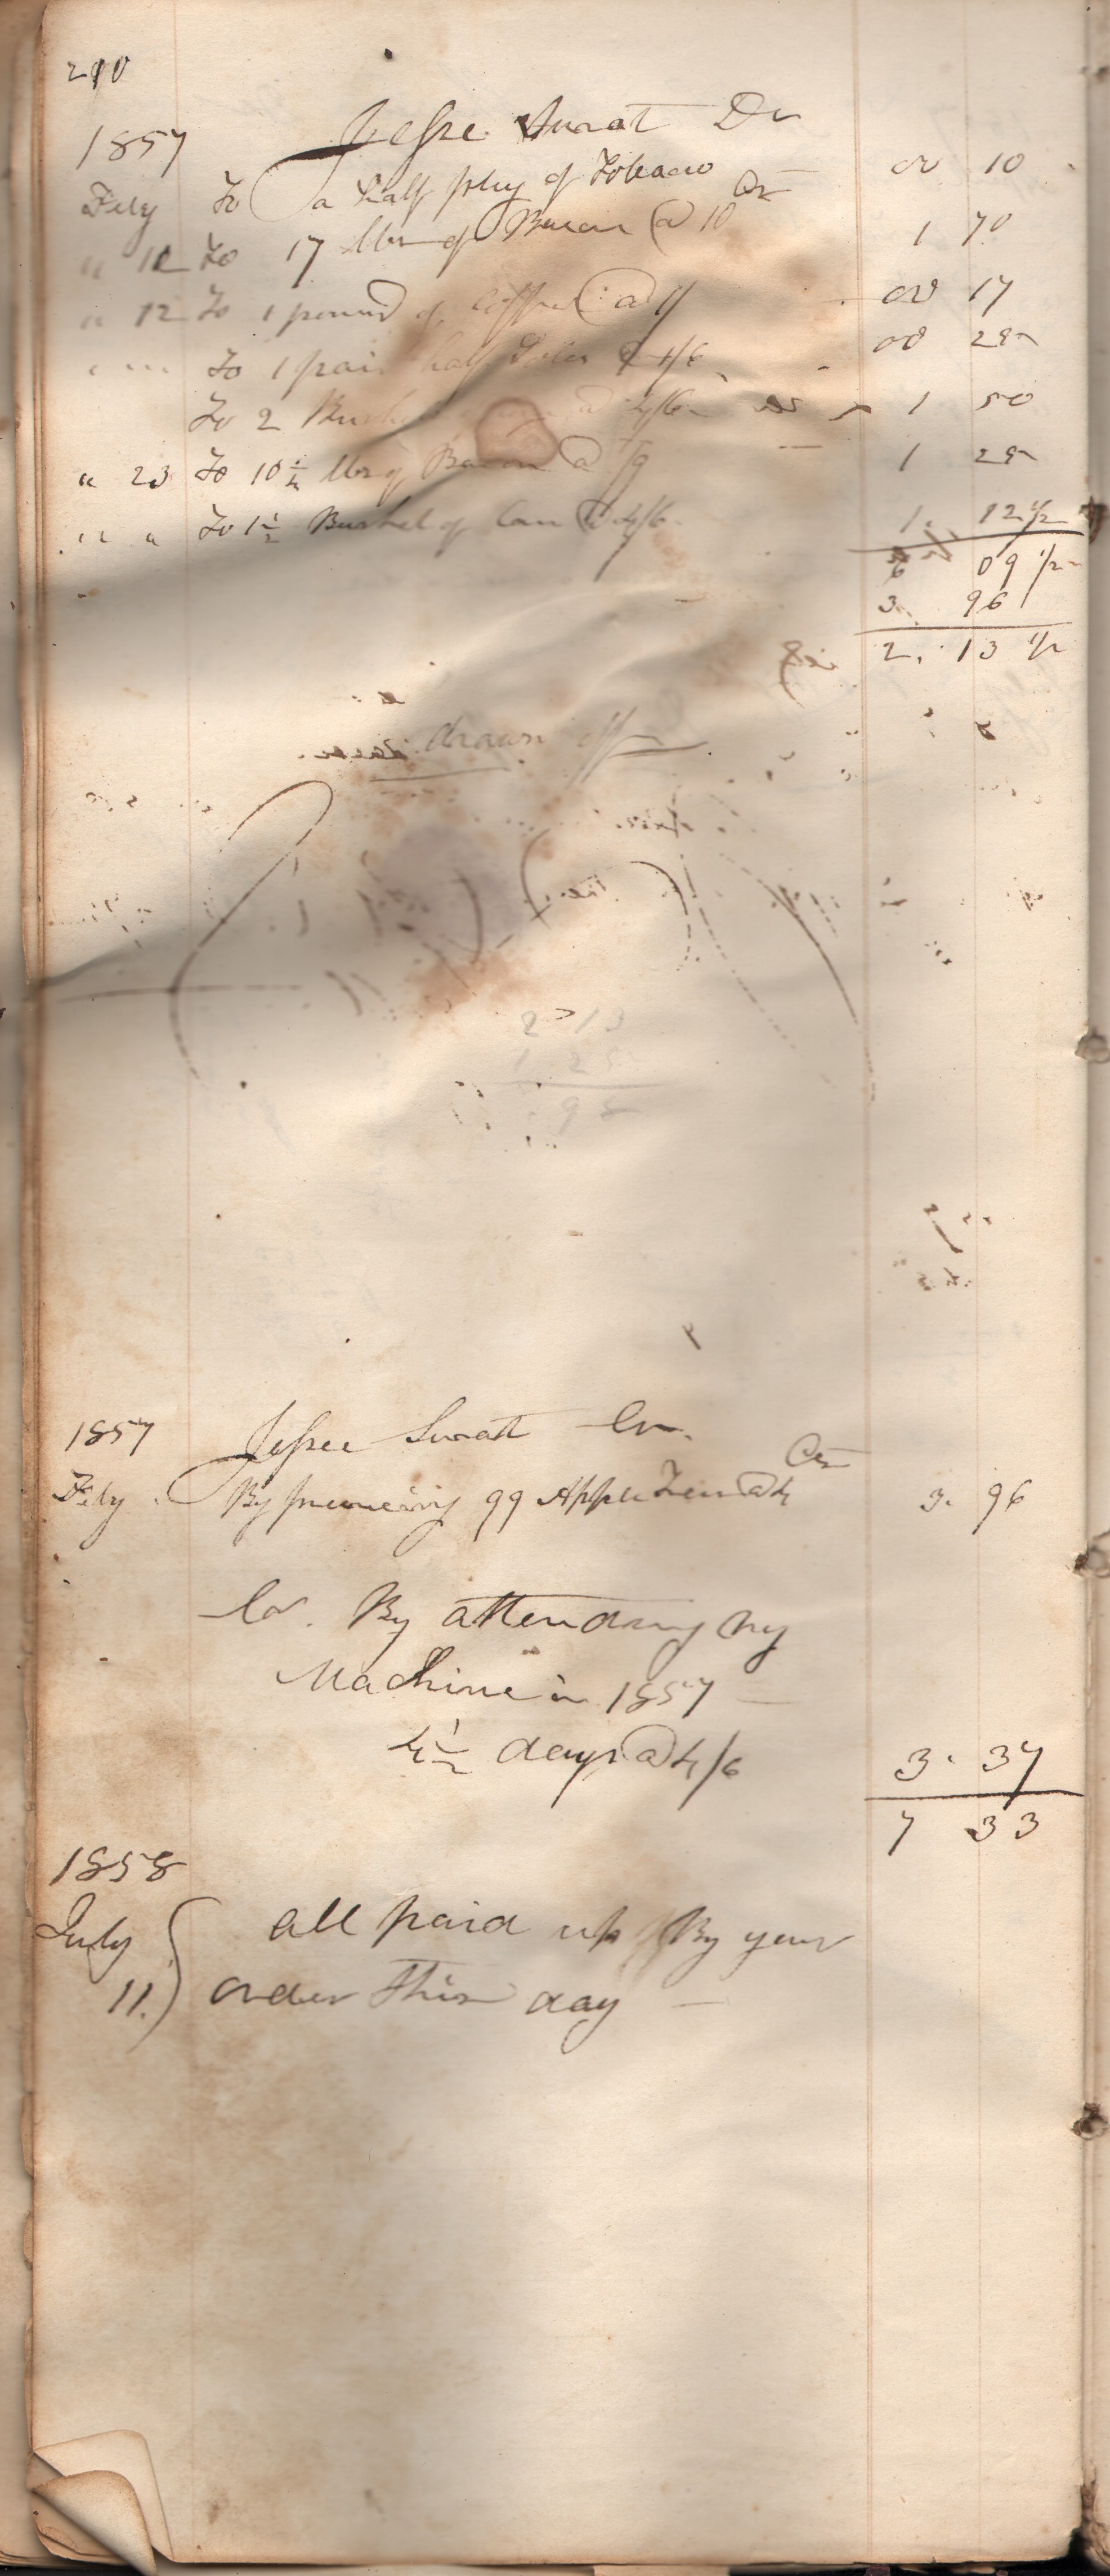 210
1857 Jesse Surat Dr
Feby To a half plug of Tobacco 00 10
" 12 To 17 lbs of Bacon @ 10 Cts 1 70
" 12 To 1 pound of Coffee @ 1/ 00 17
To 1 pair half Soles @ 1/6 00 25
To 2 Bushels @ 4/6 1 50
" 23 To 10 1/2 lbs of Bacon @ /9 1 25
" " To 1 1/2 Bushel of Corn @ 4/6 1. 12 1/2
6 09 1/2
3. 96
2. 13 1/2
drawn off
2 13
1 25
Jesse Surat Cr.
1857
Feby By pruneing 99 Apple Trees @ 4 Cts 3. 96
Cr. By attending my
Machine in 1857
4 1/2 days @ 4/6 3. 37
7 33
1858
July all paid up By your
11. order this day